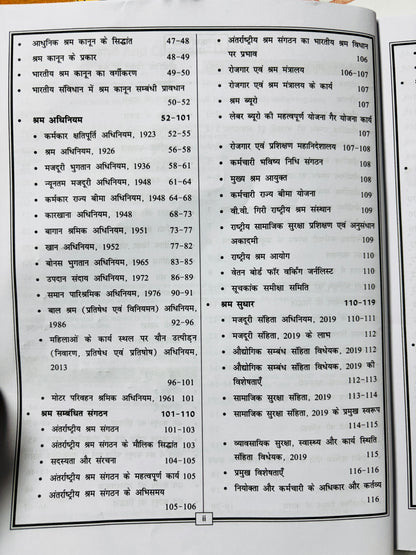 • आधुनिक श्रम कानून के सिद्धांत 47-48
• श्रम कानून के प्रकार 48-49
• भारतीय श्रम कानून का वर्गीकरण 49-50
• भारतीय संविधान में श्रम कानून सम्बंधी प्रावधान
50-52
● श्रम अधिनियम 52-101
• कर्मकार क्षतिपूर्ति अधिनियम, 1923 52-55
• श्रम अधिनियम, 1926 56-58
• मजदूरी भुगतान अधिनियम, 1936 58-61
• न्यूनतम मजदूरी अधिनियम, 1948 61-64
• कर्मकार राज्य बीमा अधिनियम, 1948 64-68
• कारखाना अधिनियम, 1948 68-73
• बागान श्रमिक अधिनियम, 1951 73-77
• खान अधिनियम, 1952 77-82
• बोनस भुगतान अधिनियम, 1965 83-85
• उपदान संदाय अधिनियम, 1972 86-89
• समान पारिश्रमिक अधिनियम, 1976 90-91
• बाल श्रम (प्रतिषेध एवं विनियमन) अधिनियम,
1986 92-96
• महिलाओं के कार्य स्थल पर यौन उत्पीड़न
(निवारण, प्रतिषेध एवं प्रतिषोष) अधिनियम,
2013
96-101
• मोटर परिवहन श्रमिक अधिनियम, 1961 101
● श्रम सम्बंधित संगठन 101-110
• अंतर्राष्ट्रीय श्रम संगठन 101-103
• अंतर्राष्ट्रीय श्रम संगठन के मौलिक सिद्धांत 103
• सदस्यता और संरचना 104-105
• अंतर्राष्ट्रीय श्रम संगठन के महत्वपूर्ण कार्य 105
• अंतर्राष्ट्रीय श्रम संगठन के अभिसमय
105-106
• अंतर्राष्ट्रीय श्रम संगठन का भारतीय श्रम विधान
पर प्रभाव 106
• रोजगार एवं श्रम मंत्रालय 106-107
• रोजगार एवं श्रम मंत्रालय के कार्य 107
• श्रम ब्यूरो 107
• लेबर ब्यूरो की महत्वपूर्ण योजना गैर योजना कार्य
107
• रोजगार एवं प्रशिक्षण महानिदेशालय 107-108
• कर्मचारी भविष्य निधि संगठन 108
• मुख्य श्रम आयुक्त 108
• कर्मचारी राज्य बीमा योजना 109
• वी.वी. गिरी राष्ट्रीय श्रम संस्थान 109
• राष्ट्रीय सामाजिक सुरक्षा प्रशिक्षण एवं अनुसंधान
अकादमी 109
• राष्ट्रीय श्रम आयोग 110
• वेतन बोर्ड फॉर वर्किंग जर्नलिस्ट 110
• सूचकांक समीक्षा समिति 110
● श्रम सुधार 110-119
• मजदूरी संहिता अधिनियम, 2019 110-111
• मजदूरी संहिता, 2019 के लाभ 112
• औद्योगिक सम्बंध संहिता विधेयक, 2019 112
• औद्योगिक सम्बंध संहिता विधेयक, 2019 की
विशेषताएँ 112-113
• सामाजिक सुरक्षा संहिता, 2019 113-114
• सामाजिक सुरक्षा संहिता, 2019 के प्रमुख स्वरूप
114-115
• व्यावसायिक सुरक्षा, स्वास्थ्य और कार्य स्थिति
संहिता विधेयक, 2019 115
• प्रमुख विशेषताएँ 116-116
• नियोक्ता और कर्मचारी के अधिकार और कर्तव्य
116
ii